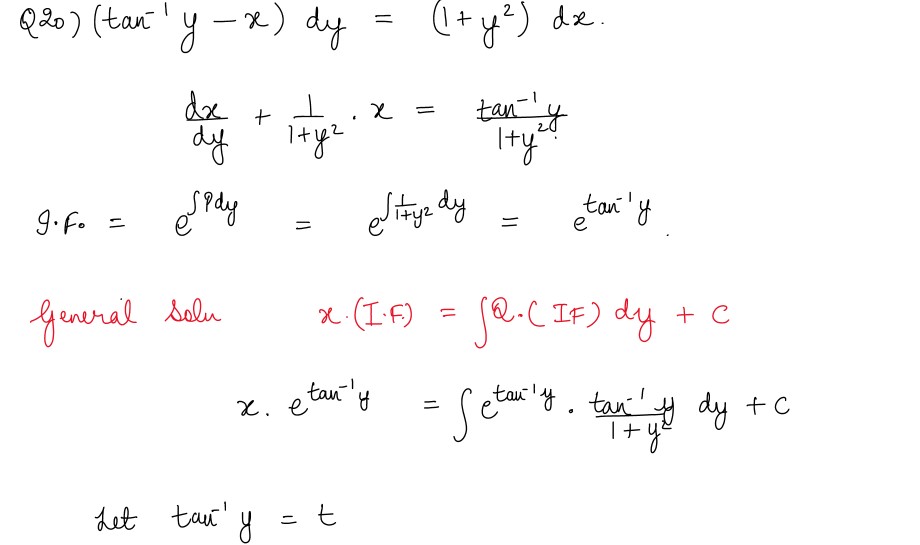 Q20) (tan⁻¹ y − x) dy = (1 + y²) dx.
dx/dy + 1/(1+y²) · x = tan⁻¹ y/(1+y²).
I.F. = e^(∫P dy) = e^(∫1/(1+y²) dy) = e^(tan⁻¹ y).
General Solu x.(I.F.) = ∫Q.(IF) dy + C
x. e^(tan⁻¹ y) = ∫e^(tan⁻¹ y) . tan⁻¹ y/(1+y²) dy + C
Let tan⁻¹ y = t